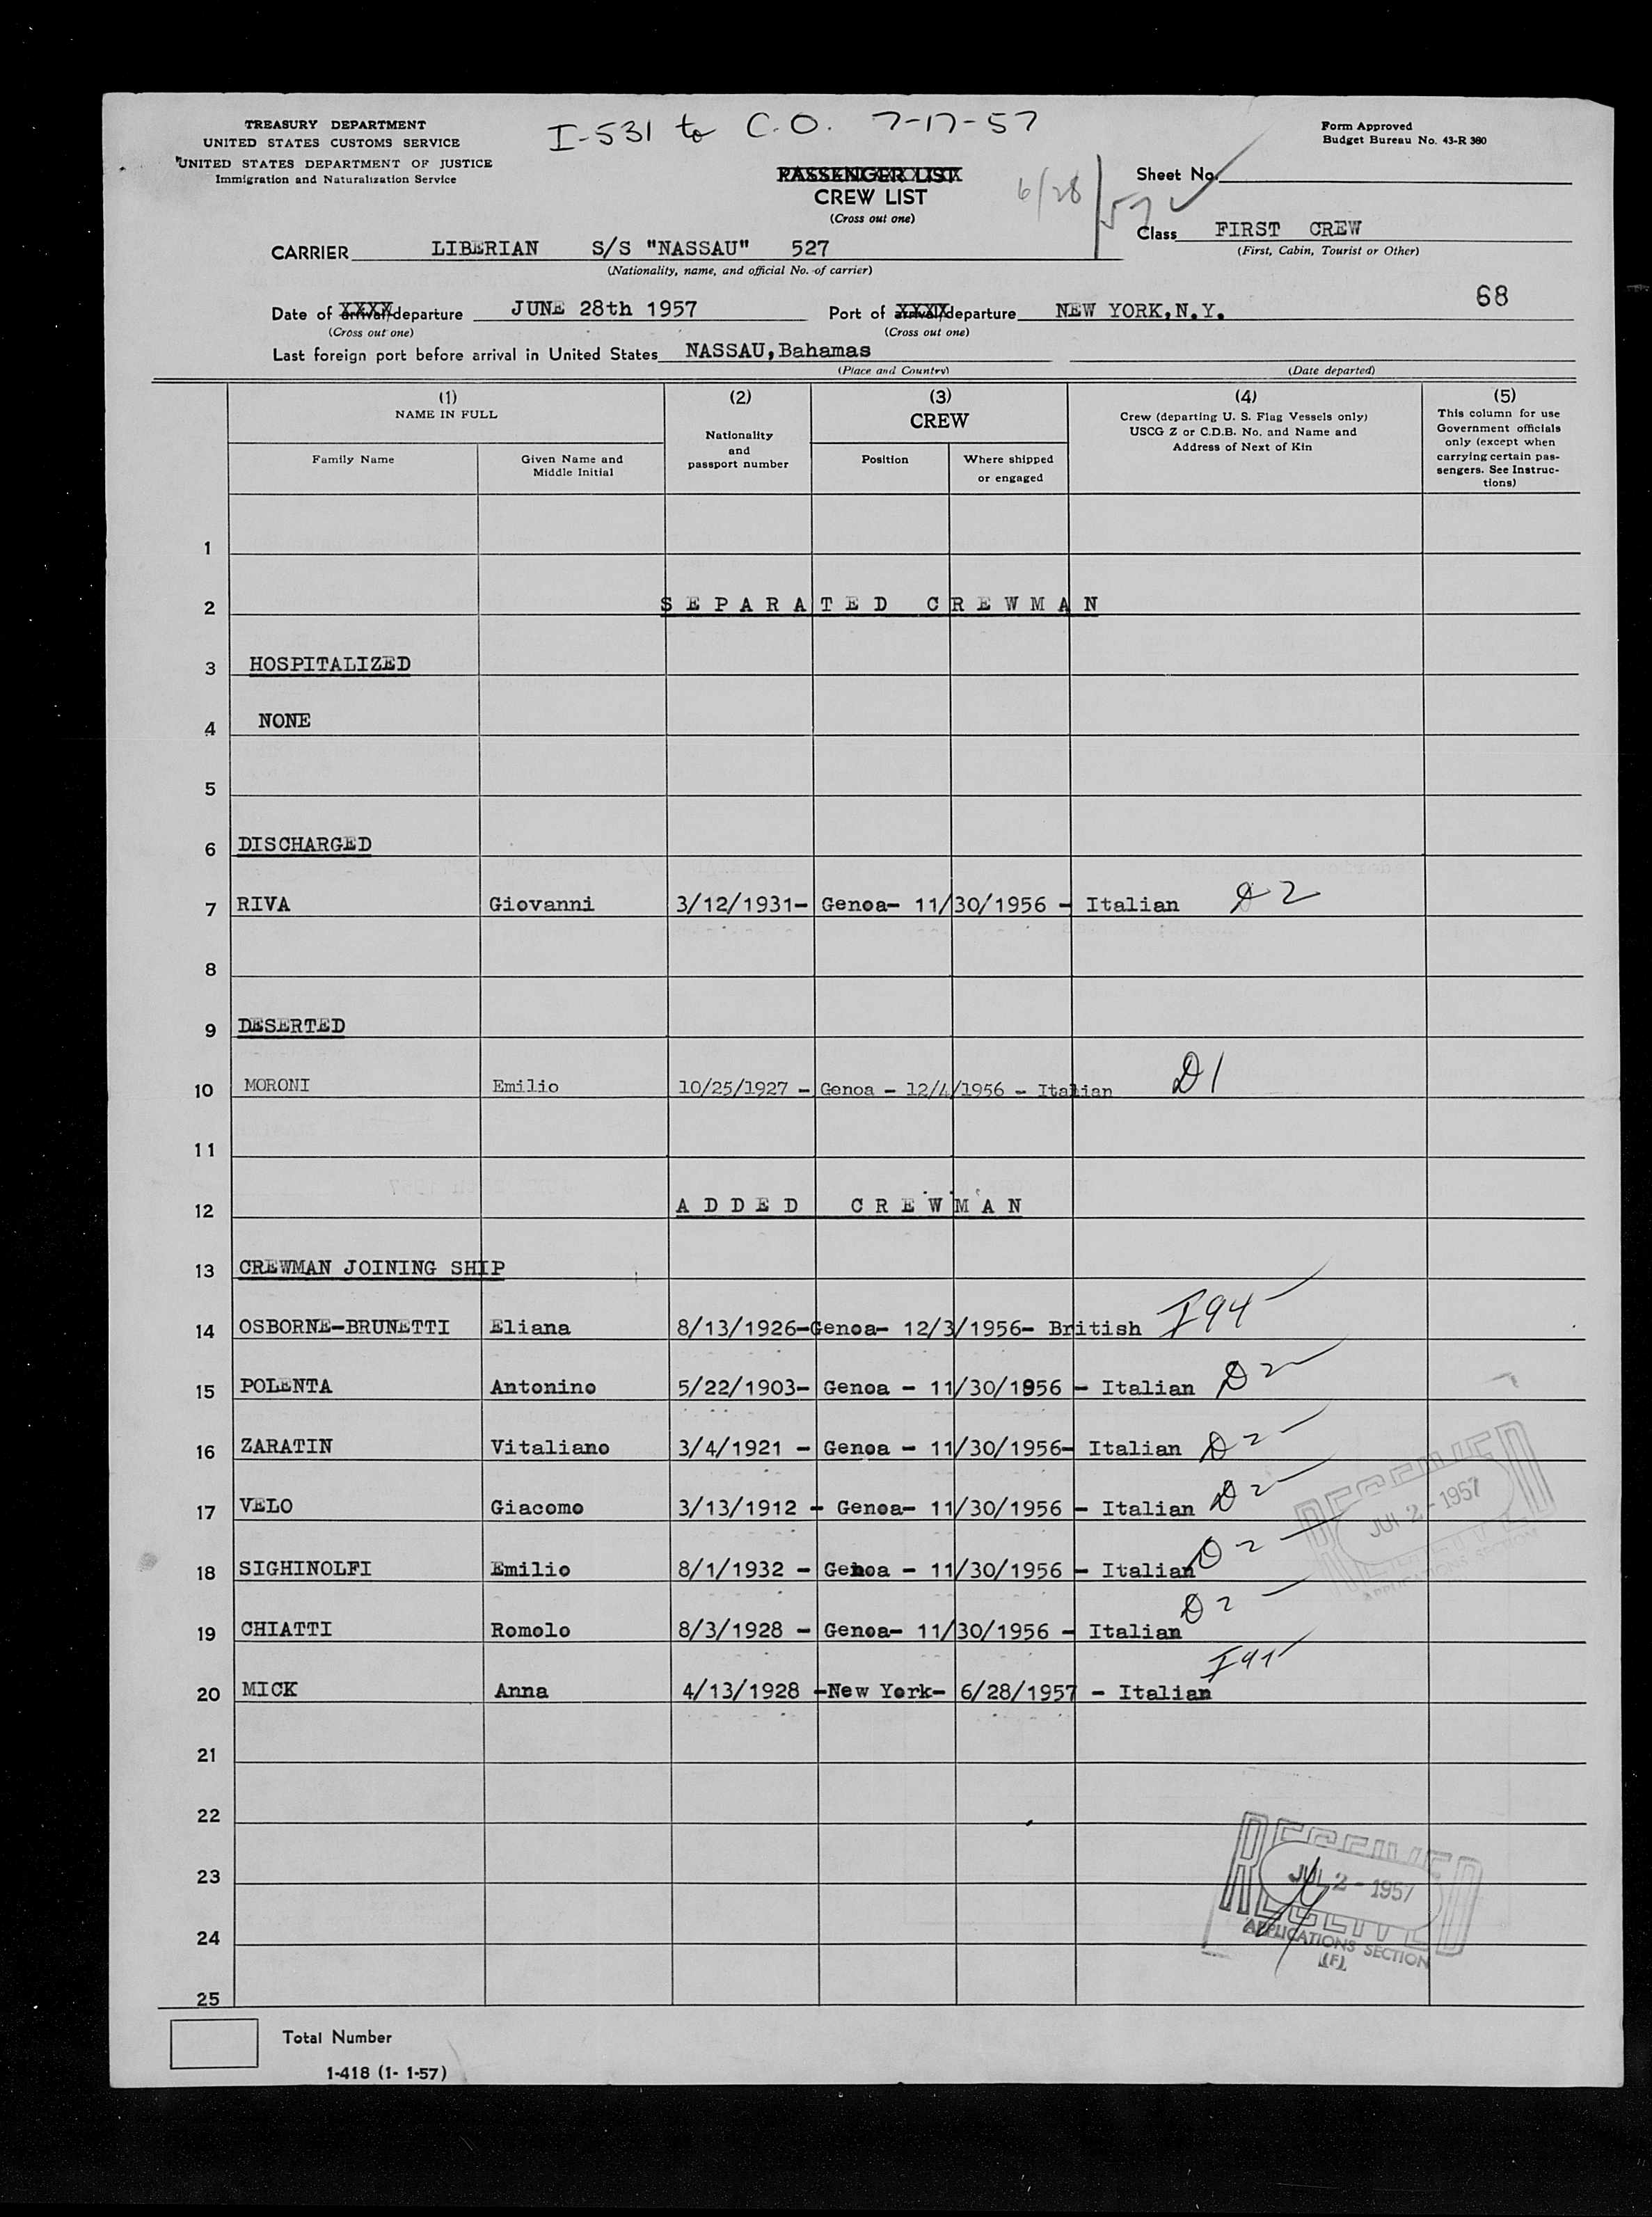 I-531 to C.O. 7-17-57
TREASURY DEPARTMENT
UNITED STATES CUSTOMS SERVICE
UNITED STATES DEPARTMENT OF JUSTICE
Immigration and Naturalization Service
Form Approved
Budget Bureau No. 43-R 380
PASSENGER LIST
CREW LIST
(Cross out one)
6/28/57
Sheet No.
Class FIRST CREW
(First, Cabin, Tourist or Other)
CARRIER LIBERIAN S/S "NASSAU" 527
(Nationality, name, and official No. of carrier)
68
Date of arrival/departure JUNE 28th 1957 Port of arrival/departure NEW YORK,N.Y.
(Cross out one) (Cross out one)
Last foreign port before arrival in United States NASSAU,Bahamas
(Place and Country) (Date departed)
(1) NAME IN FULL
Family Name
Given Name and Middle Initial
(2)
Nationality and passport number
(3)
CREW
Position
Where shipped or engaged
(4)
Crew (departing U. S. Flag Vessels only)
USCG Z or C.D.B. No. and Name and
Address of Next of Kin
(5)
This column for use
Government officials
only (except when
carrying certain pas-
sengers. See Instruc-
tions)
1
2 SEPARATED CREWMAN
3 HOSPITALIZED
4 NONE
5
6 DISCHARGED
7 RIVA Giovanni 3/12/1931- Genoa- 11/30/1956 - Italian D2
8
9 DESERTED
10 MORONI Emilio 10/25/1927 - Genoa - 12/4/1956 - Italian D1
11
12 ADDED CREWMAN
13 CREWMAN JOINING SHIP
14 OSBORNE-BRUNETTI Eliana 8/13/1926-Genoa- 12/3/1956- British I94
15 POLENTA Antonino 5/22/1903- Genoa - 11/30/1956 - Italian D2
16 ZARATIN Vitaliano 3/4/1921 - Genoa - 11/30/1956- Italian D2
17 VELO Giacomo 3/13/1912 - Genoa- 11/30/1956 - Italian D2
18 SIGHINOLFI Emilio 8/1/1932 - Genoa - 11/30/1956 - Italian D2
19 CHIATTI Romolo 8/3/1928 - Genoa- 11/30/1956 - Italian D2
20 MICK Anna 4/13/1928 -New York- 6/28/1957 - Italian
21
22
23
24
25
RECEIVED
JUL 2 - 1957
APPLICATIONS SECTION
RECEIVED
JUL 2 - 1957
APPLICATIONS SECTION
(F)
Total Number
1-418 (1- 1-57)